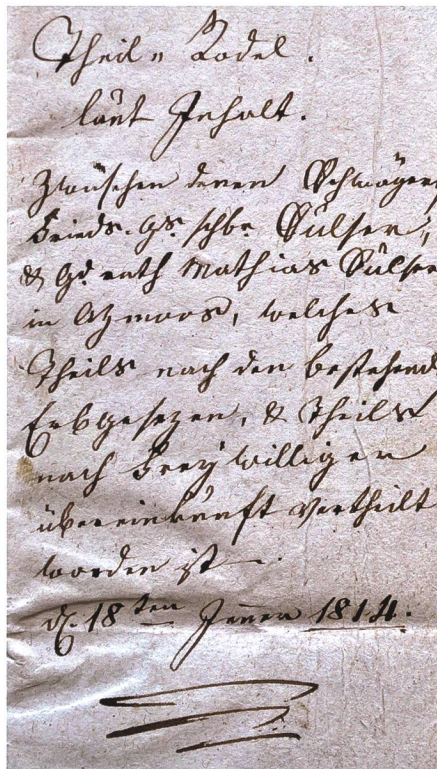 Theil〃 Rodel.
laut Inhalt.
Zwüschen denen Schwägern
Frieds. Gs. schbr. Sulser,
& Gd. rath Mathias Sulser
in Azmoos, welches
Theils nach den bestehend
Erbgesezen, & Theils
nach Freÿwilliger
übereinkunft vertheilt
worden ist
d. 18ten Jenner 1814.